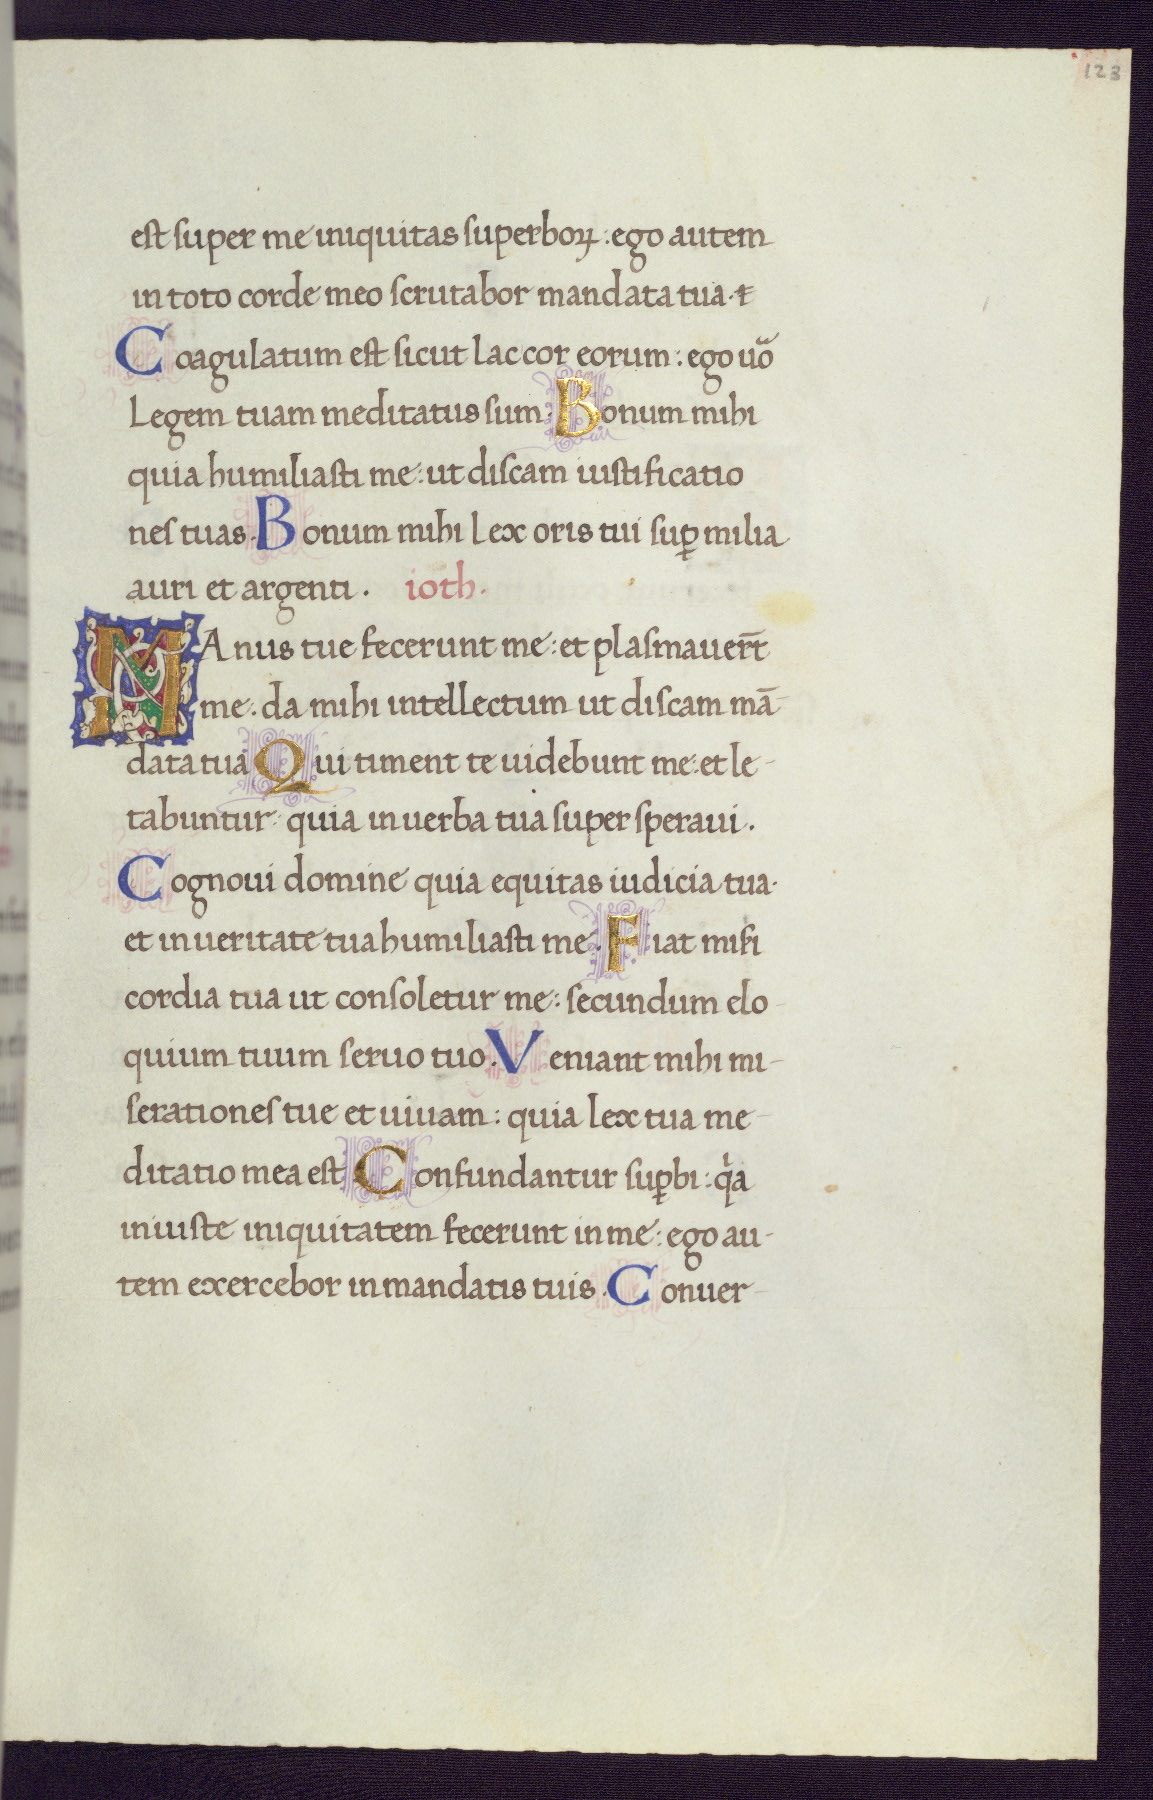 123
est super me iniquitas superboꝝ : ego autem
in toto corde meo scrutabor mandata tua . t
Coagulatum est sicut lac cor eorum : ego uoᷓ
Legem tuam meditatus sum : Bonum mihi
quia humiliasti me : ut discam iustificatio
nes tuas . Bonum mihi lex oris tui suꝑ milia
auri et argenti . ioth .
MAnus tue fecerunt me : et plasmauer̄t
me . da mihi intellectum ut discam mā-
data tua Qui timent te uidebunt me : et le-
tabuntur : quia in uerba tua super speraui .
Cognoui domine quia equitas iudicia tua .
et in ueritate tua humiliasti me . Fiat mis̄i
cordia tua ut consoletur me : secundum elo-
quium tuum seruo tuo . Veniant mihi mi-
serationes tue et uiuam : quia lex tua me-
ditatio mea est Confundantur suꝑbi : qͥa
iniuste iniquitatem fecerunt in me : ego au-
tem exercebor in mandatis tuis . Conuer-